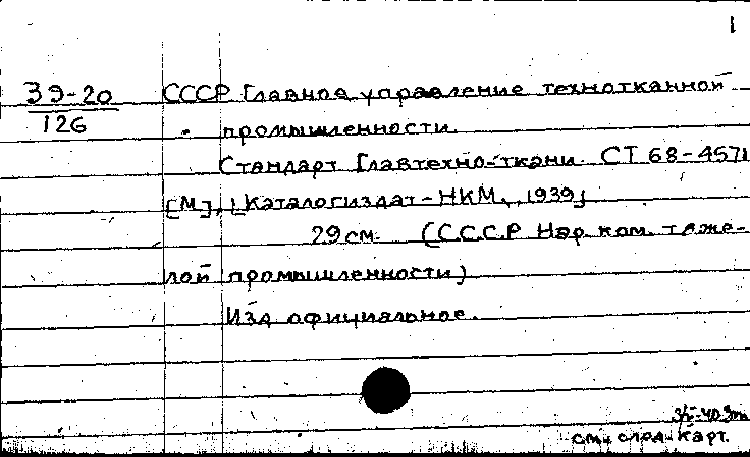 1
39-20
126
СССР Главное управление технотканной
промышленности.
Стандарт Главтехно-ткани СТ 68-4571
[М], [Каталогиздат-НКМ, 1939]
29 см. (С.С.С.Р Нар. ком. тяже-
лой промышленности)
Изд официальное.
см. след. карт.